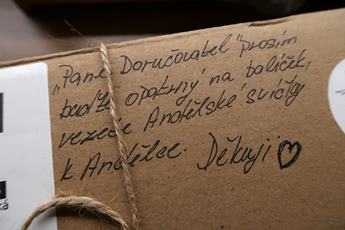 „Pane Doručovatel" prosím
buďte opatrný na balíček,
vezete Andělské svíčky
k Andělce. Děkuji ♡